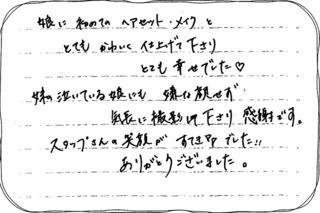 娘に 初めての ヘアセット・メイクと
とても かわいく 仕上げて下さり
とても 幸せでした♡
泣いている娘にも 嫌な顔せず
気長に撮影して下さり 感謝です。
スタッフさんの笑顔が すてきでした!!
ありがとうございました。